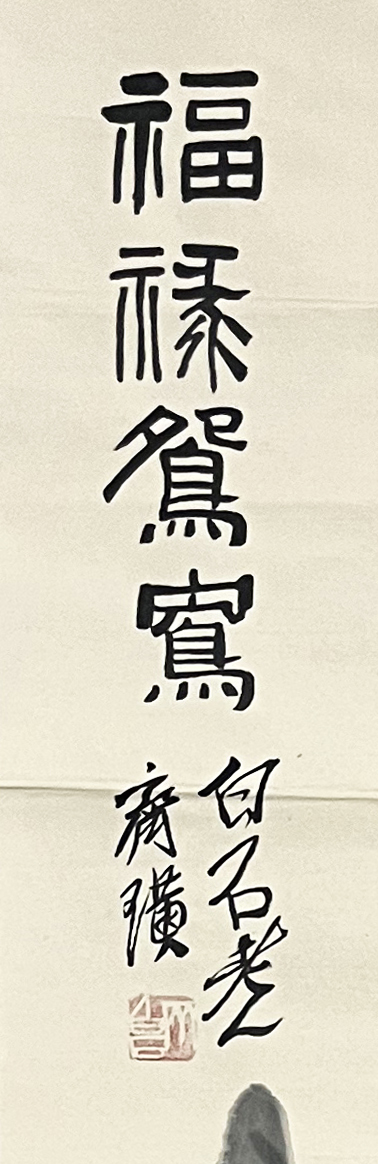 福祿鴛鴦
白石老人
齊璜